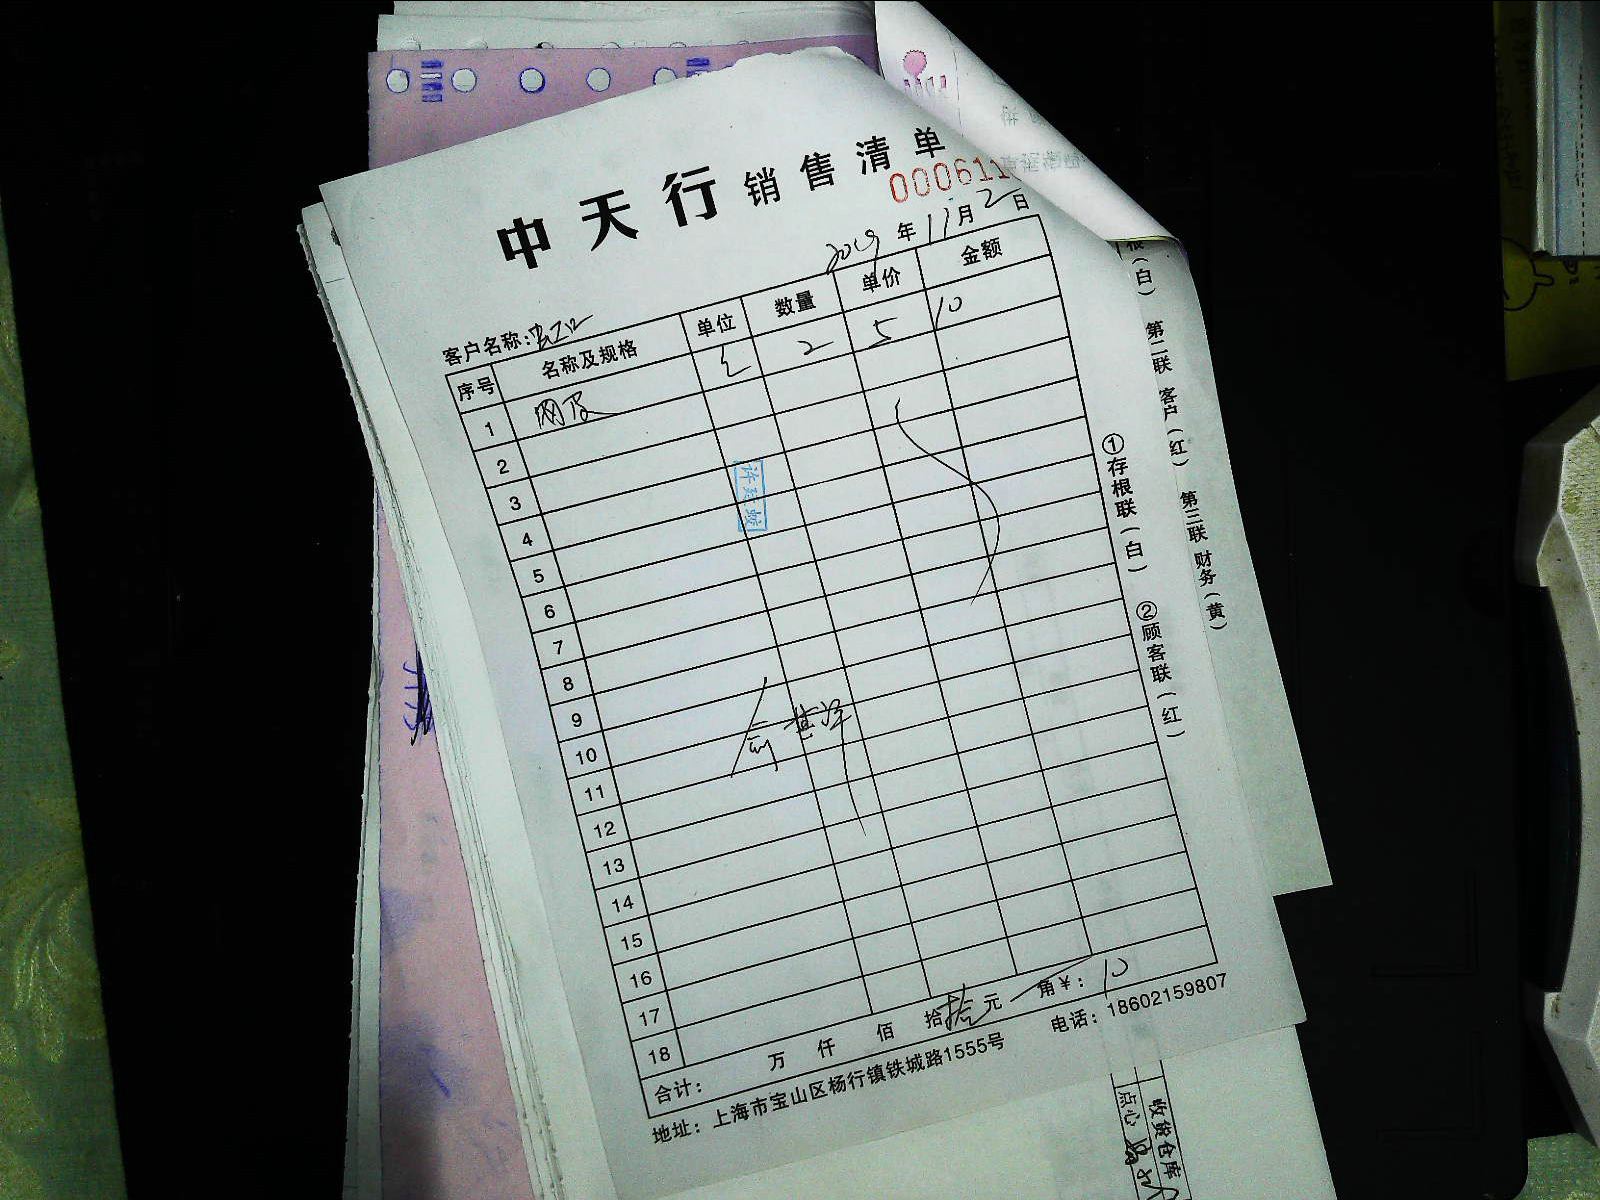 中天行销售清单
000611
2019年11月2日
客户名称:
序号 名称及规格 单位 数量 单价 金额
1 网 2 5 10
2
3
4
5
6
7
8
9
10
11
12
13
14
15
16
17
18
合计: 万 仟 佰 拾 拾 元 角¥: 10
地址: 上海市宝山区杨行镇铁城路1555号 电话: 18602159807
①存根联(白) ②顾客联(红)
根(白) 第二联 客户(红) 第三联 财务(黄)
收货仓库
点心